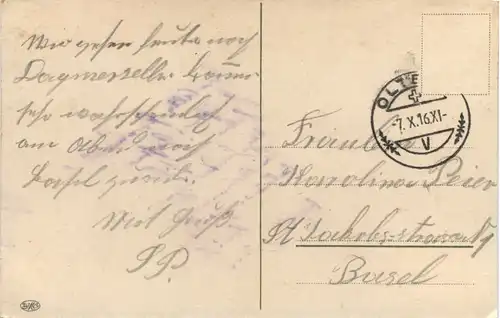 Wir gehen heute nach
Dagmersellen kommen
sehr wahrscheinlich
am Abend nach
Basel zurück.
Mit Gruß.
OLTEN
-7.X.16.XI-
V
Fräulein
Karolina Beier
St Jakobs-strasse
Basel